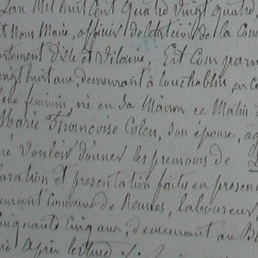 L'an Mil huit Cent Quatre vingt quatre,
Et Nous Maire, officier de l'état civil de la Com
artement d'ille et Vilaine, Est Comparu
vingt huit ans, demeurant à
xe féminin, née en sa Maison ce Matin à
Marie Françoise Colen, son épouse, ag
ré vouloir donner les prénoms de
aration et présentation faite en présence
eurant Commune de Rennes, laboureur
inquante Cinq ans, demeurant au
Après lecture